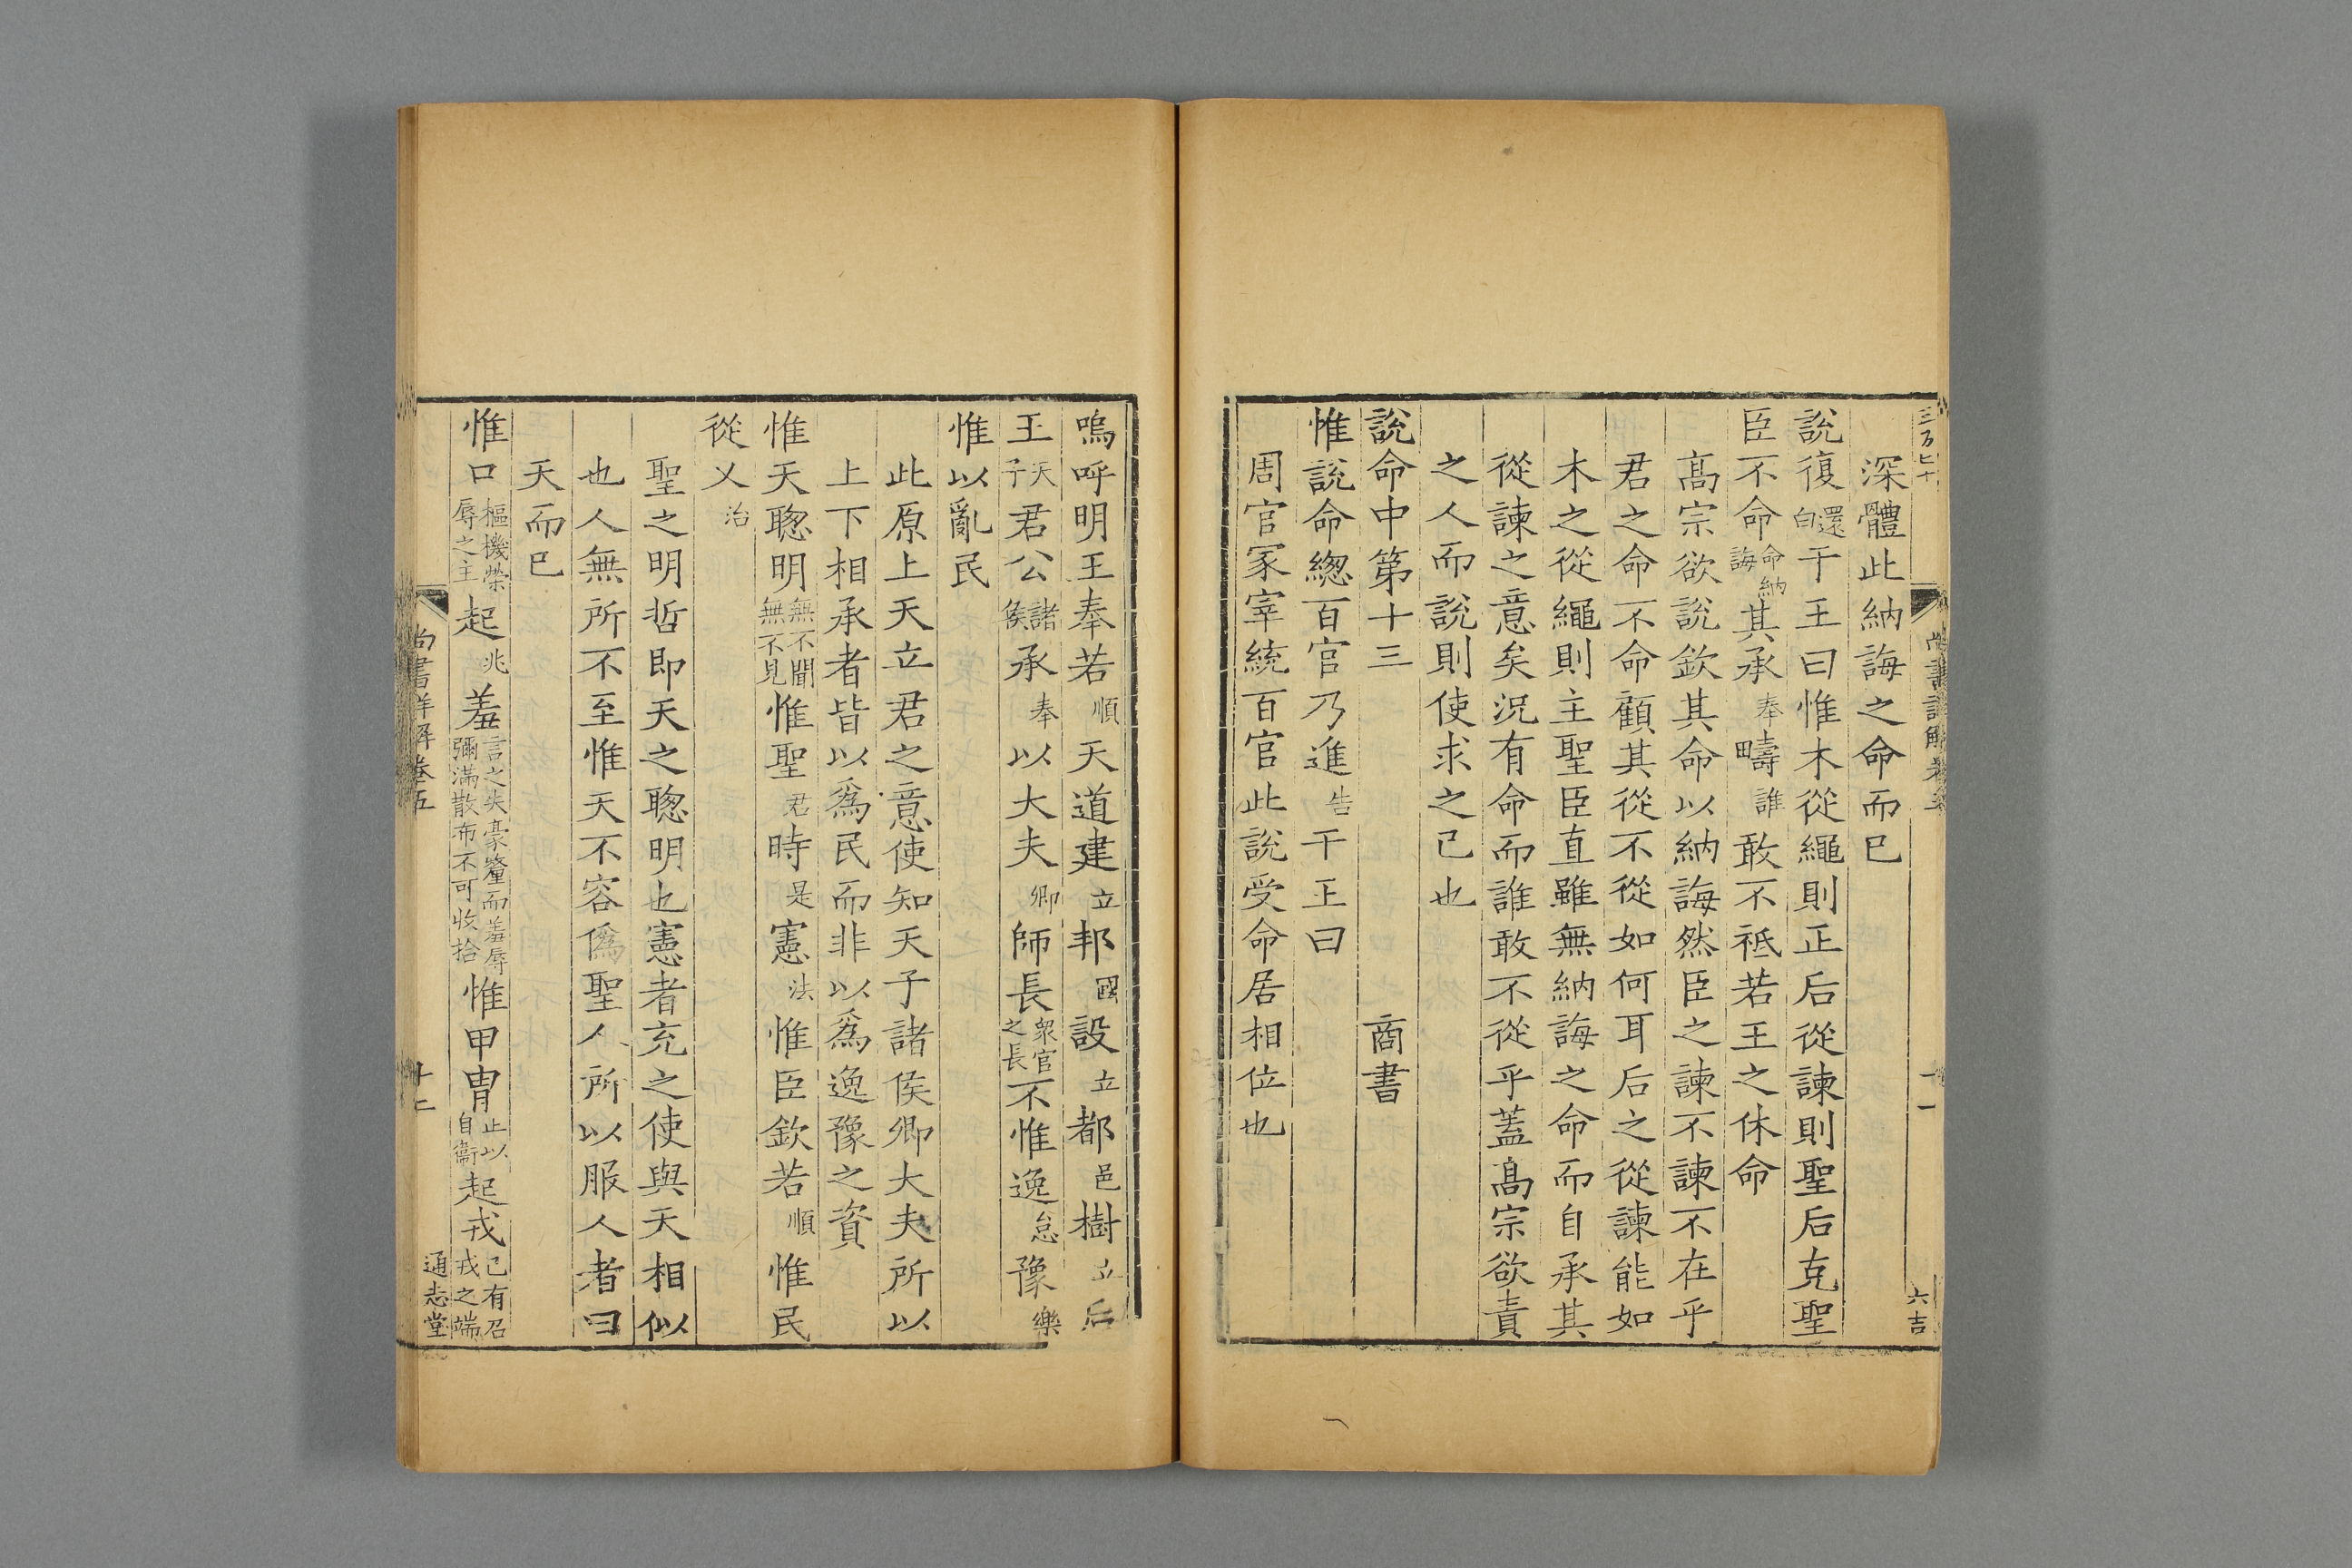 深體此納誨之命而已
說復還白于王曰惟木從繩則正后從諫則聖后克聖
臣不命命納誨其承奉疇誰敢不祗若王之休命
高宗欲說欽其命以納誨然臣之諫不諫不在乎
君之命不命顧其從不從如何耳后之從諫能如
木之從繩則主聖臣直雖無納誨之命而自承其
從諫之意矣況有命而誰敢不從乎蓋高宗欲責
之人而說則使求之已也
說命中第十三 商書
惟說命緫百官乃進告于王曰
周官冢宰統百官此說受命居相位也
嗚呼明王奉若順天道建立邦國設立都邑樹立后
王天子君公諸侯承奉以大夫卿師長衆官之長不惟逸怠豫樂
惟以亂民
此原上天立君之意使知天子諸侯卿大夫所以
上下相承者皆以爲民而非以爲逸豫之資
惟天聦明無不聞無不見惟聖君時是憲法惟臣欽若順惟民
從乂治
聖之明哲即天之聦明也憲者充之使與天相似
也人無所不至惟天不容僞聖人所以服人者曰
天而已
惟口樞機榮辱之主起兆羞言之失豪釐而羞辱彌滿散布不可收拾惟甲冑止以自衞起戎已有召戎之端
尚書詳解卷五
十二
通志堂